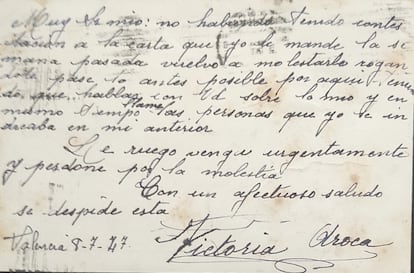 Muy Sr mio: no habiendo tenido contes
tacion a la carta que yo le mande la se
mana pasada vuelvo a molestarle rogan
dole pase lo antes posible por aqui,
do que hablar con Vd sobre lo mio y en
mismo tiempo llame las personas que yo le in
dicaba en mi anterior
Le ruego venga urgentamente
y perdone por la molestia
Con un afectuoso saludo
se despide esta
Victoria Aroca
Valencia 8-7-47.